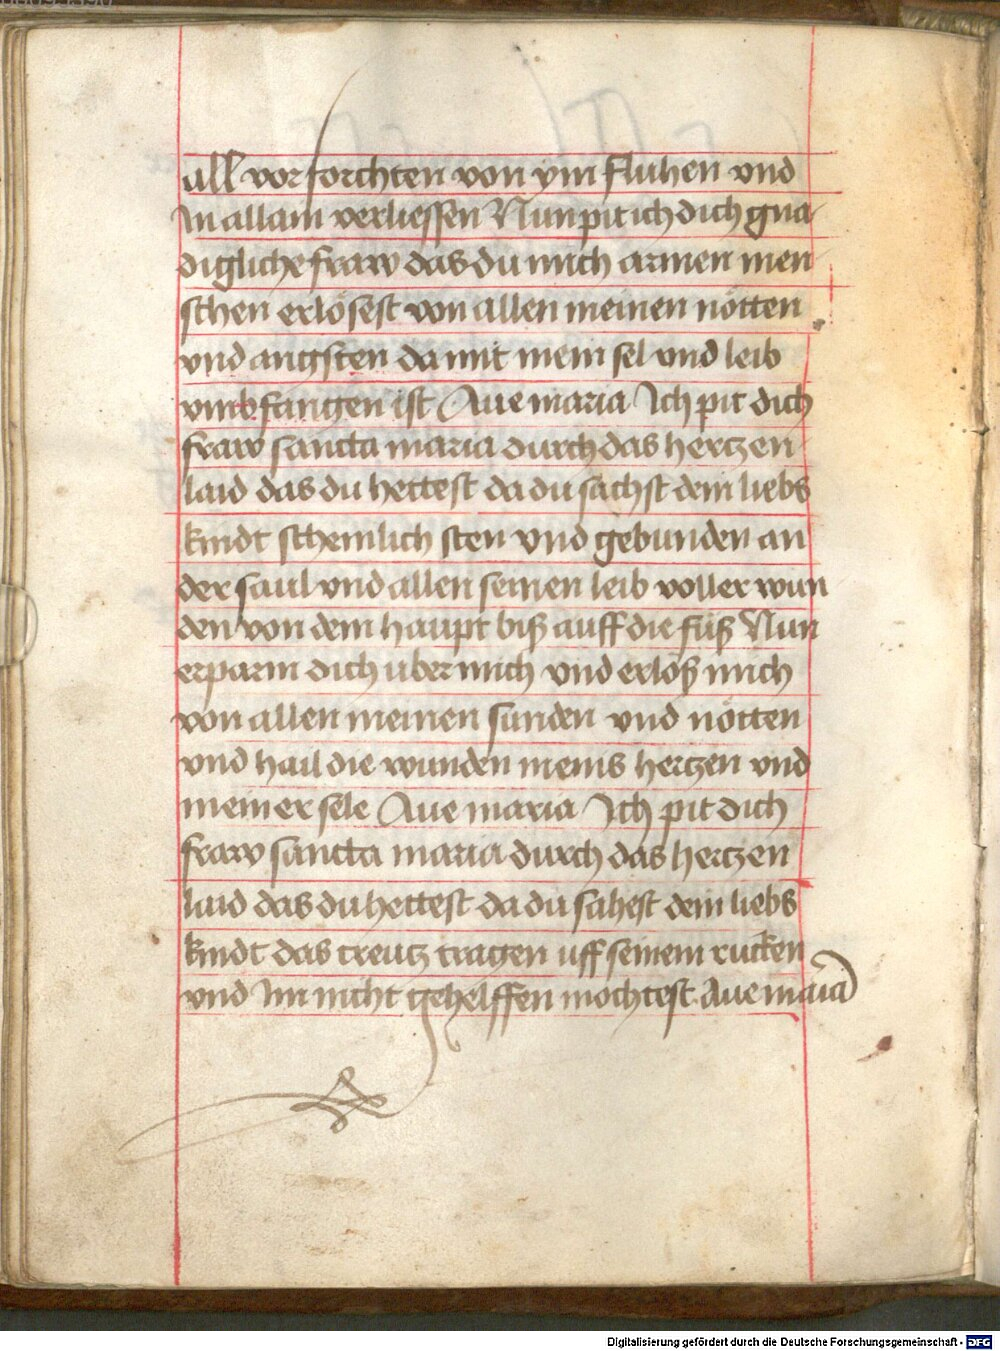 all vor forchten von ym fluhen vnd
In allain verliessen Nun pit ich dich gna
digliche fraw das du mich armen men
schen erlösest von allen meinen nötten
vnd angsten da mit mein sel vnd leib
vmbfangen ist Aue maria Ich pit dich
fraw sancta maria durch das hertzen
laid das du hettest da du sachst dein liebs
kindt schemlich sten vnd gebunden an
der saul vnd allen seinen leib voller wun
den von dem haupt biß auff die füß Nun
erparm dich uber mich vnd erlöß mich
von allen meinen sunden vnd nötten
vnd hail die wunden meins hertzen vnd
meiner sele Aue maria Ich pit dich
fraw sancta maria durch das hertzen
laid das du hettest da du sahest dein liebs
kindt das creutz tragen uff seinem rucken
vnd Im nicht gehelffen mochtest Aue maria
Digitalisierung gefördert durch die Deutsche Forschungsgemeinschaft - DFG